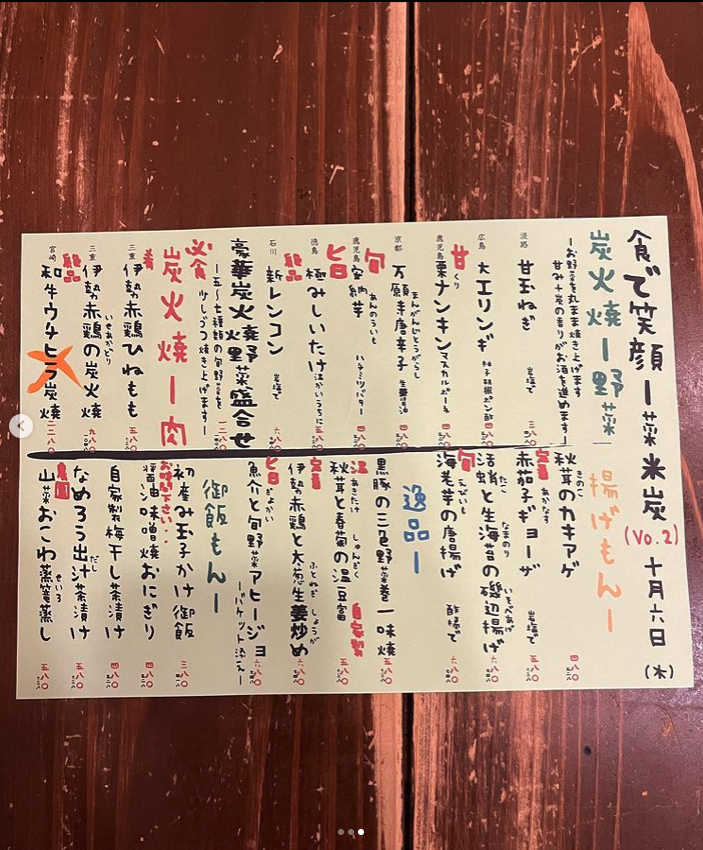 食で笑顔ー菜米炭(Vo.2) 十月六日(木)
炭火焼ー野菜
ーお野菜を丸まま焼き上げます
甘み+炭の香りがお酒を進めますー
淡路 甘玉ねぎ 岩塩で 三八〇
広島 大エリンギ 柚子胡椒ポン酢 四八〇
鹿児島 甘 栗ナンキン マスカルポーネ 四八〇
くり
京都 万願寺唐辛子 生姜醤油 四八〇
まんがんじとうがらし
鹿児島 旬 安納芋 ハチミツバター 四八〇
あんのういも
徳島 旨 極みしいたけ 五八〇
石川 新レンコン 岩塩で 六八〇
絶品
豪華炭火焼野菜盛合せ
ー五〜七種類の旬野菜を
少しづつ焼き上げますー
必食 炭火焼ー肉
三重 伊勢赤鶏ひねもも 五八〇
三重 伊勢赤鶏の炭火焼 九八〇
いせあかどり
宮崎 絶品 和牛ウチヒラ炭火焼
揚げもんー
秋茸のカキアゲ 四八〇
きのこ
定番 赤茄子ギョーザ 岩塩で 五八〇
あかなす
活蛸と生海苔の磯辺揚げ 六八〇
たこ なまのり いそべあげ
旬 海老芋の唐揚げ 酢橘で 六八〇
えびいも
逸品ー
黒豚の三色野菜巻一味焼 五八〇
秋茸と春菊の温豆富 自家製 五八〇
あきたけ しゅんぎく
定番 伊勢赤鶏と大葱生姜炒め 六八〇
ふとねぎ しょうが
旨 魚介と旬野菜アヒージョ 六八〇
ぎょかい
ーバケット添えー
御飯もんー
初産み玉子かけ御飯 三八〇
醤油味噌焼おにぎり 四八〇
自家製梅干し茶漬け 四八〇
なめろう出汁茶漬け 五八〇
だし
山菜おこわ蒸篭蒸し 五八〇
せいろ